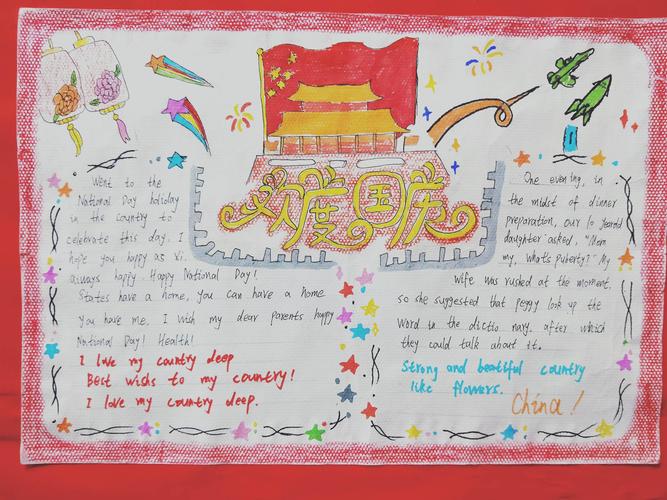 欢度国庆
Went to the
National Day holiday
in the country to
celebrate this day. I
hope you happy as xi.
always happy. Happy National Day!
States have a home, you can have a home
you have me, I wish my dear parents happy
National Day! Health!
I love my country deep
Best wishs to my country!
I love my country deep.
One evening, in
the midst of dinner
preparation, our 10 yearold
daughter asked, "Mom
my, what's puberty?" My
wife was rushed at the moment,
so she suggested that peggy look up the
word in the dictio nary. after which
they could talk about it.
Strong and beatiful country
like flowers.
China!